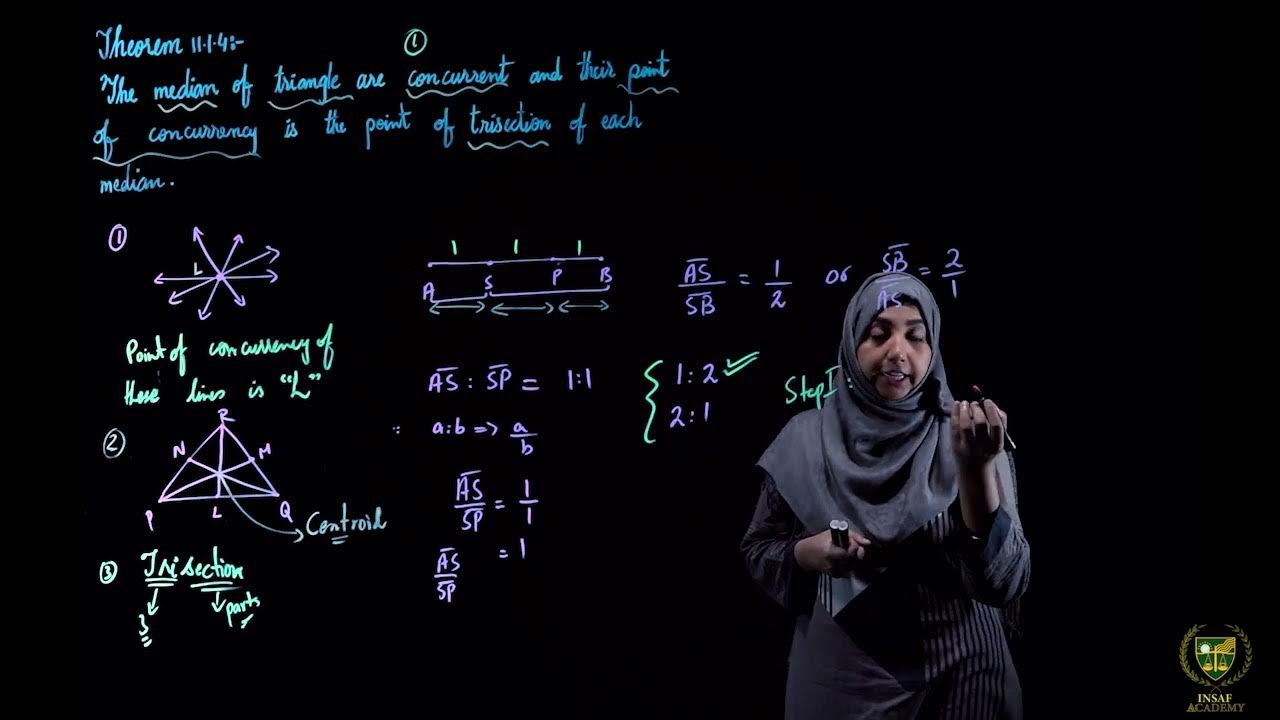 Theorem 11.1.4:-
①
The median of triangle are concurrent and their point
of concurrency is the point of trisection of each
median.
①
L
Point of concurrency of
these lines is "L"
②
R
N
M
P
L
Q
Centroid
③ Trisection
3
parts
1 1 1
A S P B
AS : SP = 1:1
∵ a:b => a/b
AS/SP = 1/1
AS/SP = 1
AS/SB = 1/2 or SB/AS = 2/1
1:2
2:1
Step I:
INSAF
ACADEMY